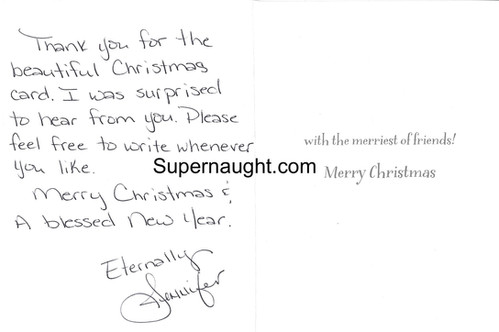 Thank you for the
beautiful Christmas
card. I was surprised
to hear from you. Please
feel free to write whenever
you like.
Merry Christmas &
A blessed New Year.
Eternally,
Jennifer
Supernaught.com
with the merriest of friends!
Merry Christmas